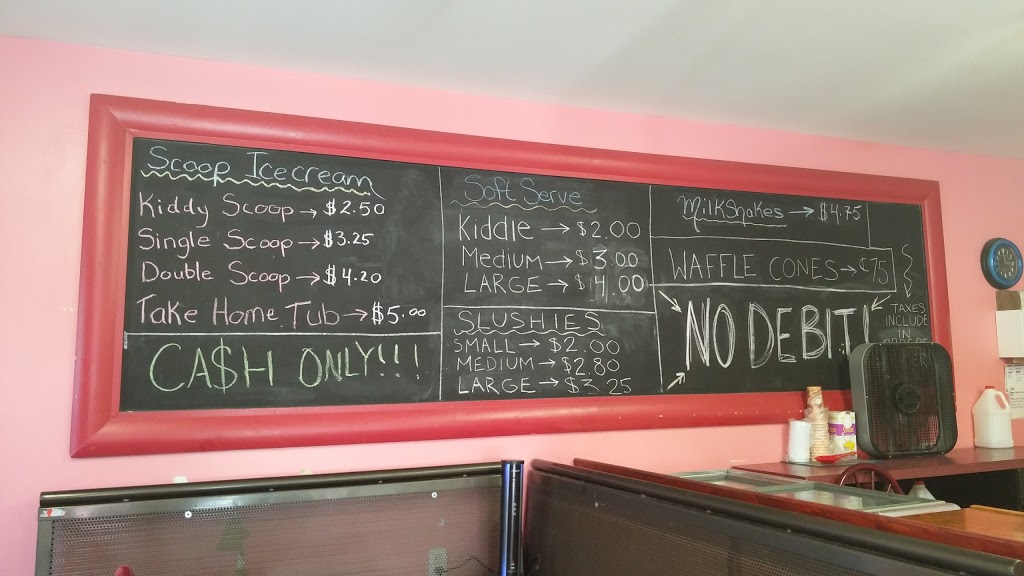 Scoop Icecream
Kiddy Scoop → $2.50
Single Scoop → $3.25
Double Scoop → $4.20
Take Home Tub → $5.00
CA$H ONLY!!!
Soft Serve
Kiddie → $2.00
Medium → $3.00
LARGE → $4.00
SLUSHIES
SMALL → $2.00
MEDIUM → $2.80
LARGE → $3.25
MilkShakes → $4.75
WAFFLE CONES → ¢75
NO DEBIT!
TAXES
INCLUDE
IN